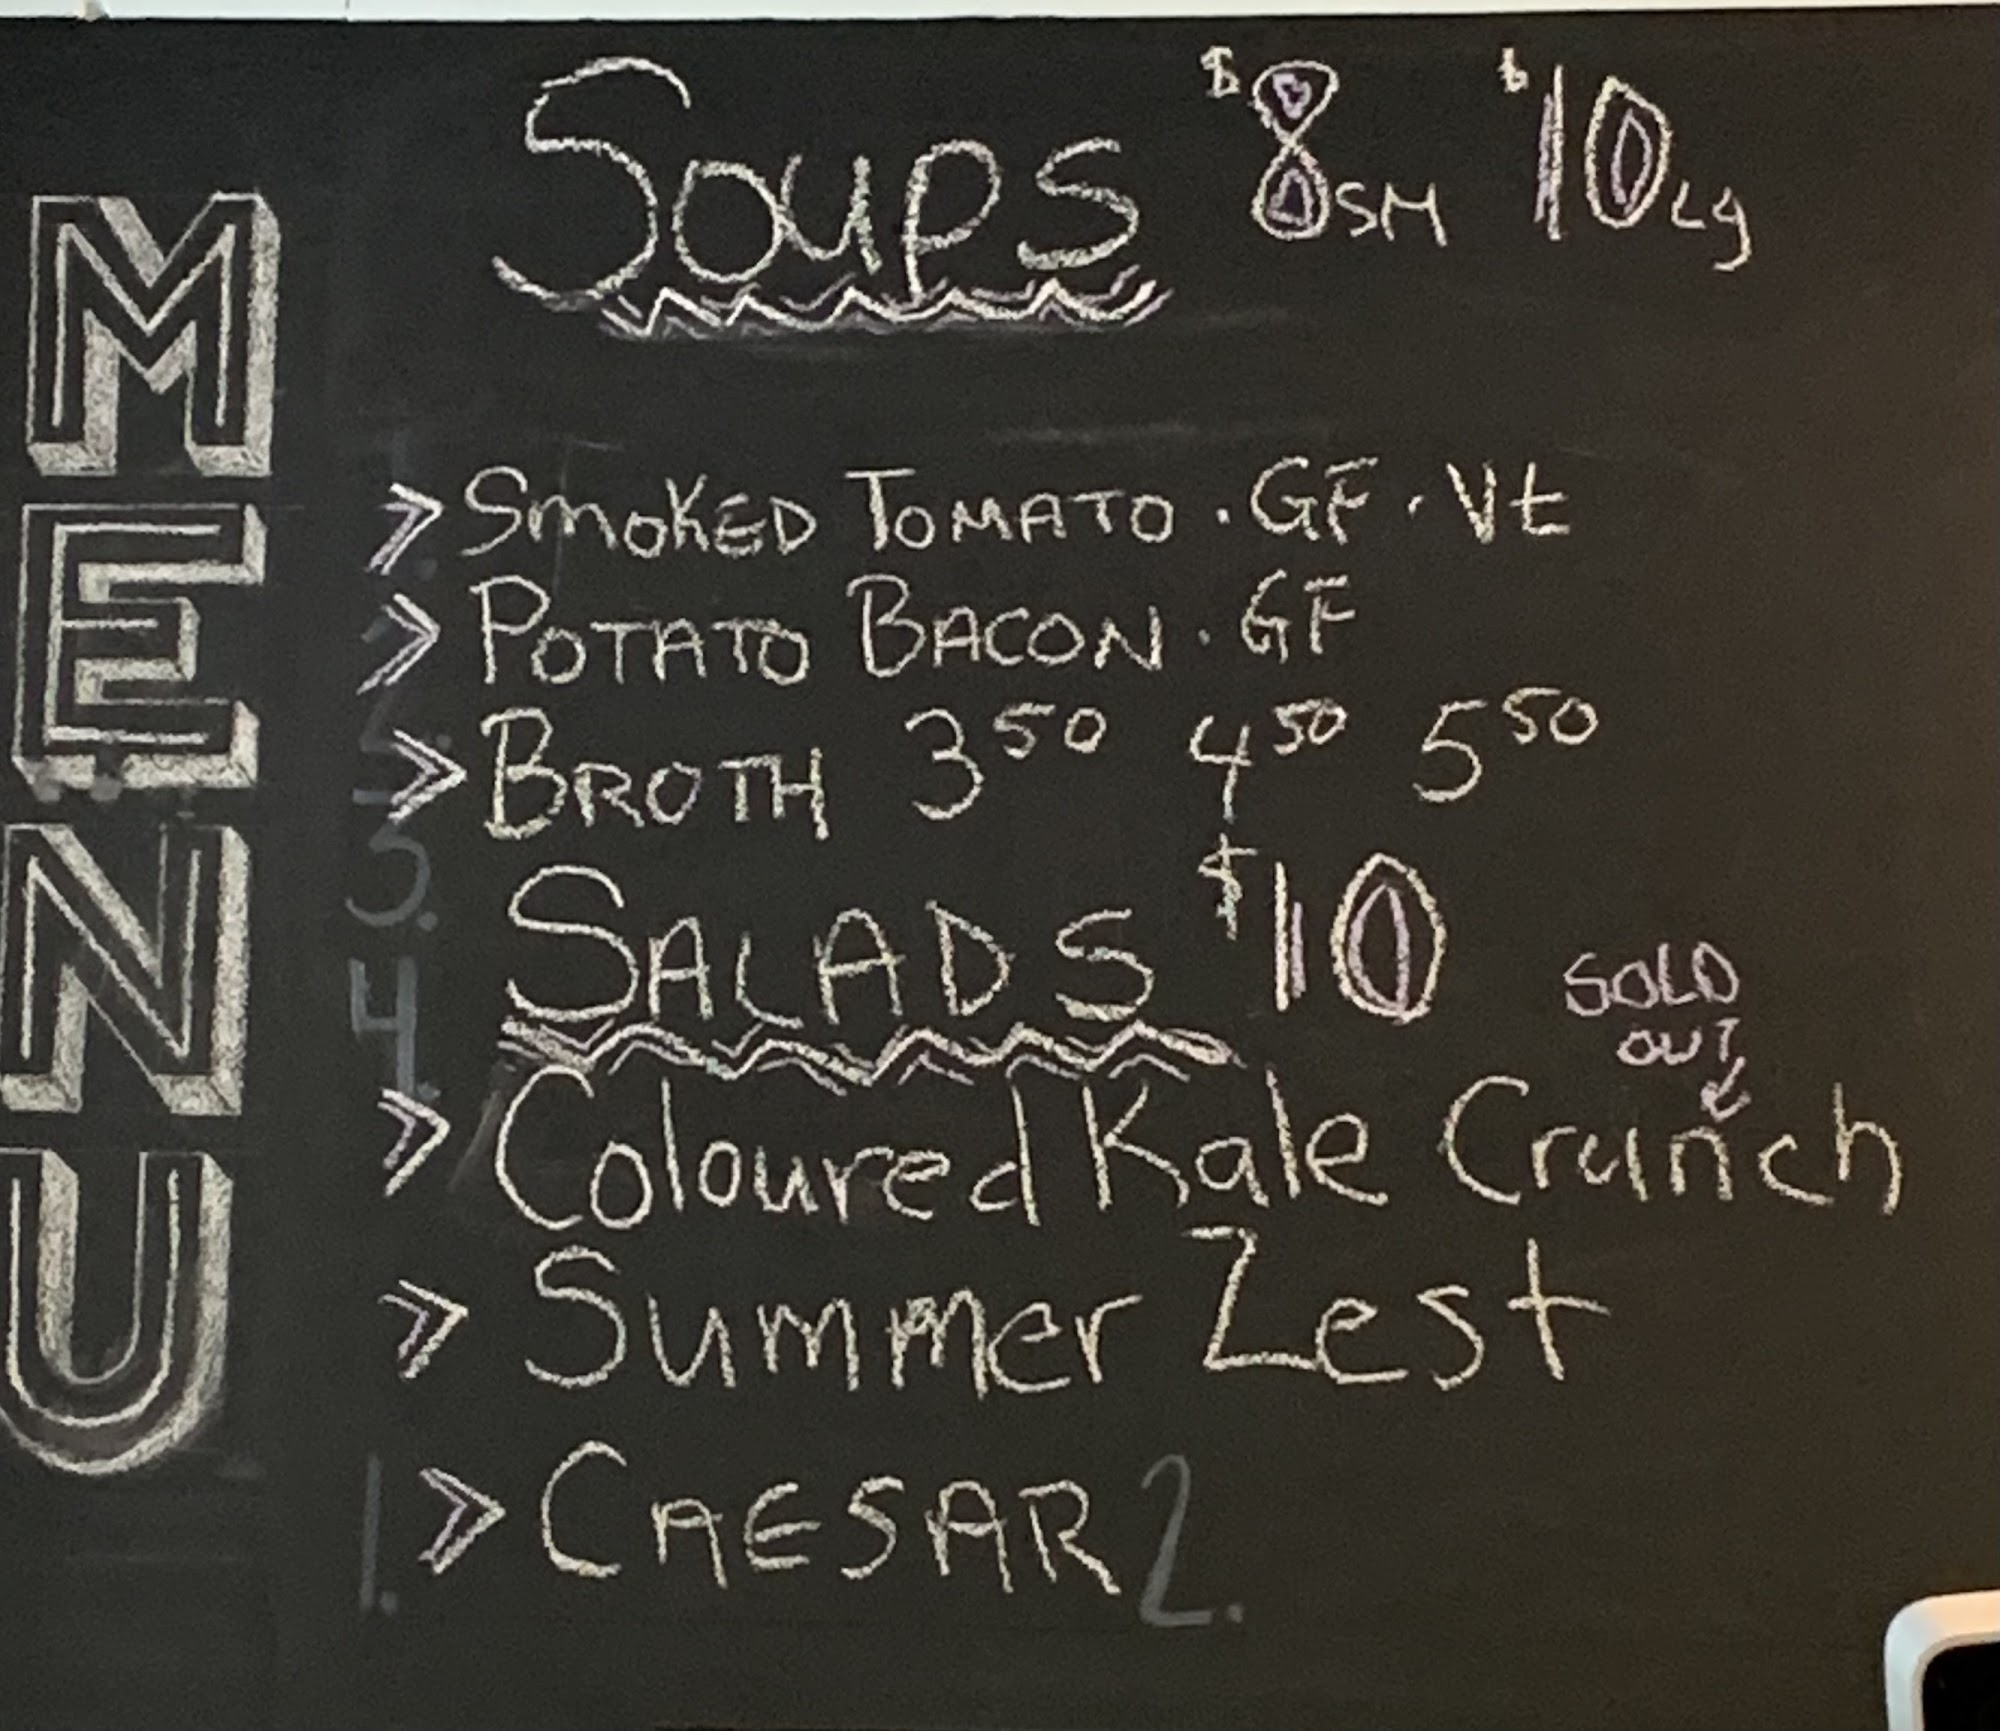 MENU
Soups $8 SM $10 Lg
> Smoked Tomato · GF · Vt
> Potato Bacon · GF
> Broth 3 50 4 50 5 50
3.
Salads $10
4.
SOLD
OUT
> Coloured Kale Crunch
> Summer Zest
1. > CAESAR 2.